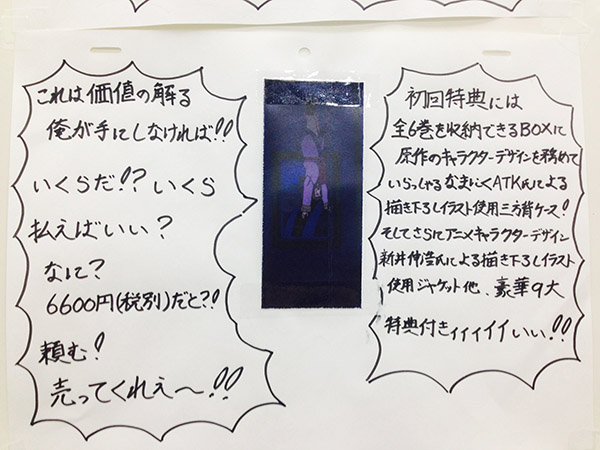 これは価値の解る
俺が手にしなければ!!
いくらだ!?いくら
払えばいい?
なに?
6600円(税別)だと?!
頼む!
売ってくれえ〜!!
初回特典には
全6巻を収納できるBOXに
原作のキャラクターデザインを務めて
いらっしゃるなまにくATK氏による
描き下ろしイラスト使用三方背ケース!
そしてさらにアニメキャラクターデザイン
新井伸浩氏による描き下ろしイラスト
使用ジャケット他、豪華9大
特典付きィィイイいい!!